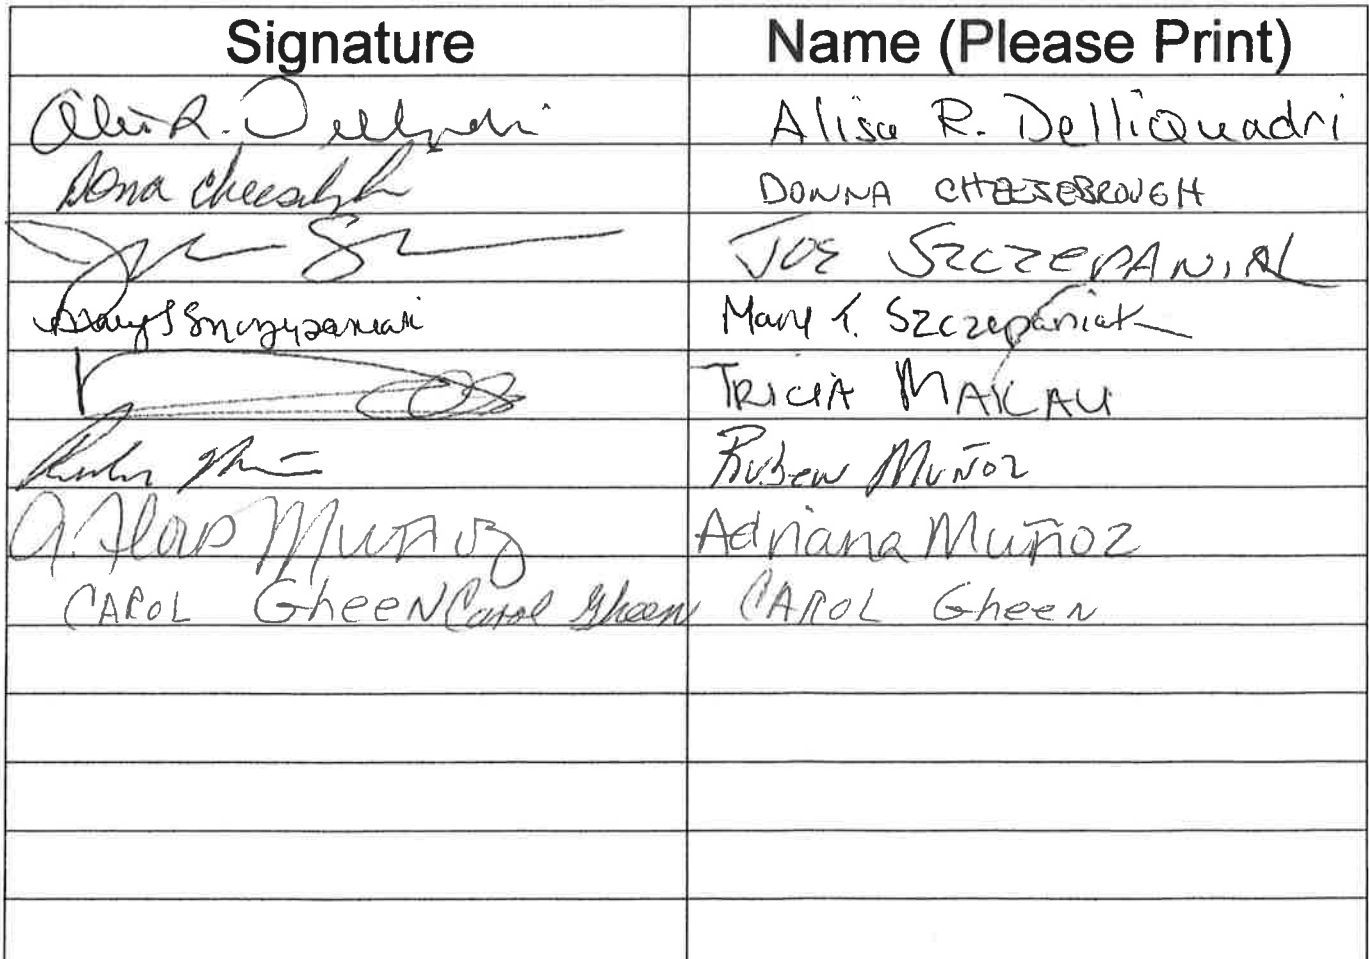 Signature Name (Please Print)
Alisa R. Delliquadri Alisa R. DelliQuadri
Donna Cheesebrough DONNA CHEESEBROUGH
JOE SZCZEPANIAK
Mary T. Szczepaniak
TRICIA MAKAU
Ruben MUÑOZ
A. Flores Muñoz Adriana Muñoz
CAROL GheeN Carol Gheen CAROL GheeN